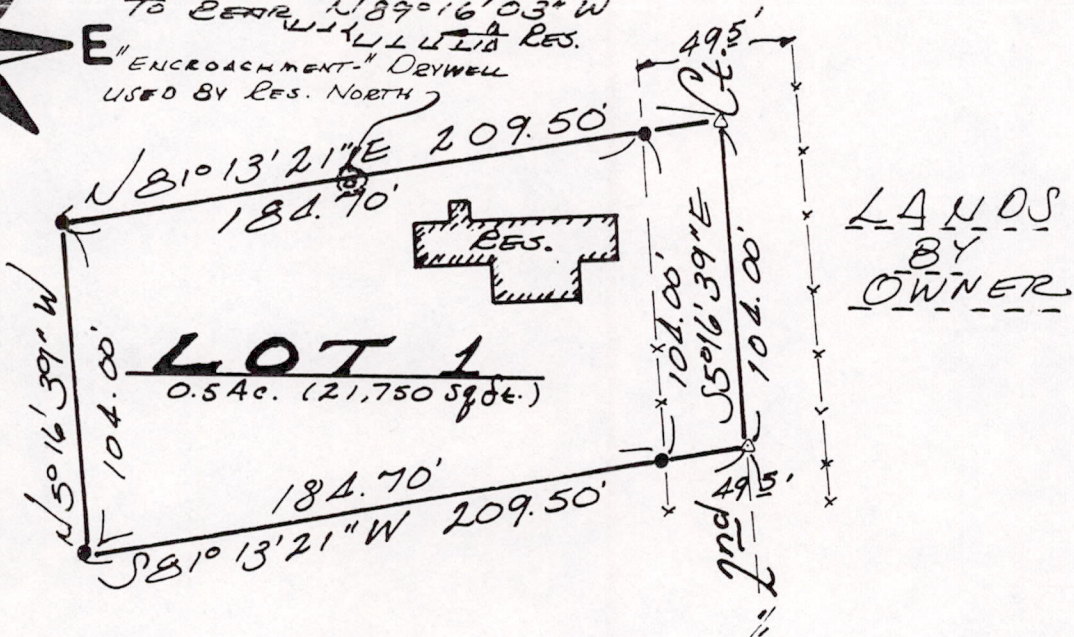 TO BEAR N89°16'03"W
RES.
E
"ENCROACHMENT-" DRYWELL
USED BY RES. NORTH
49.5'
Ct.
N81°13'21"E 209.50'
184.70'
RES.
LANDS
BY
OWNER
N5°16'39"W
104.00'
LOT 1
0.5 Ac. (21,750 Sqft.)
104.00'
S5°16'39"E
104.00'
184.70'
S81°13'21"W 209.50'
49.5'
2nd